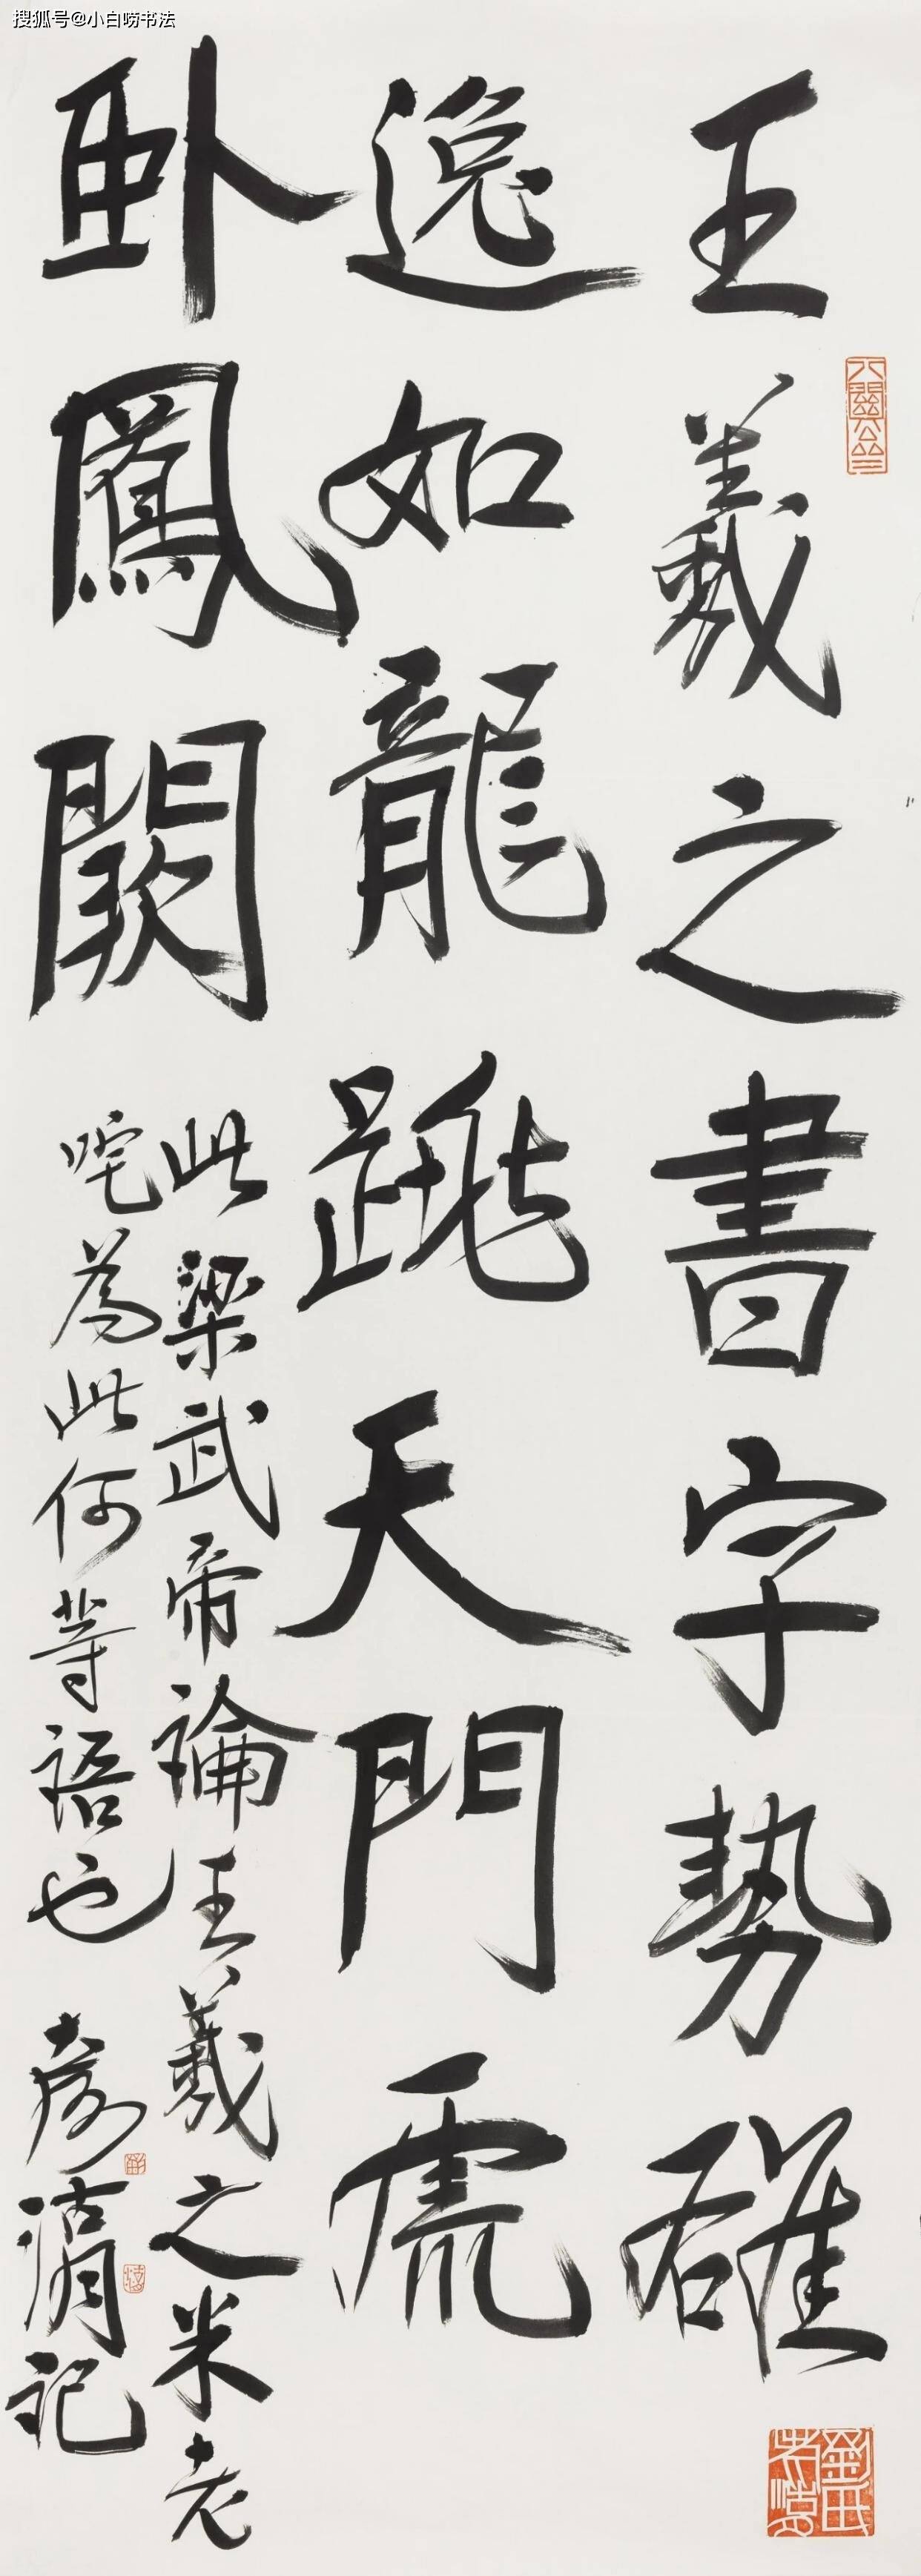 搜狐号@小白唠书法
王羲之書字勢雄
逸如龍跳天門虎
卧鳳闕
此梁武帝論王羲之米老
咤為此何等語也 彥湖記